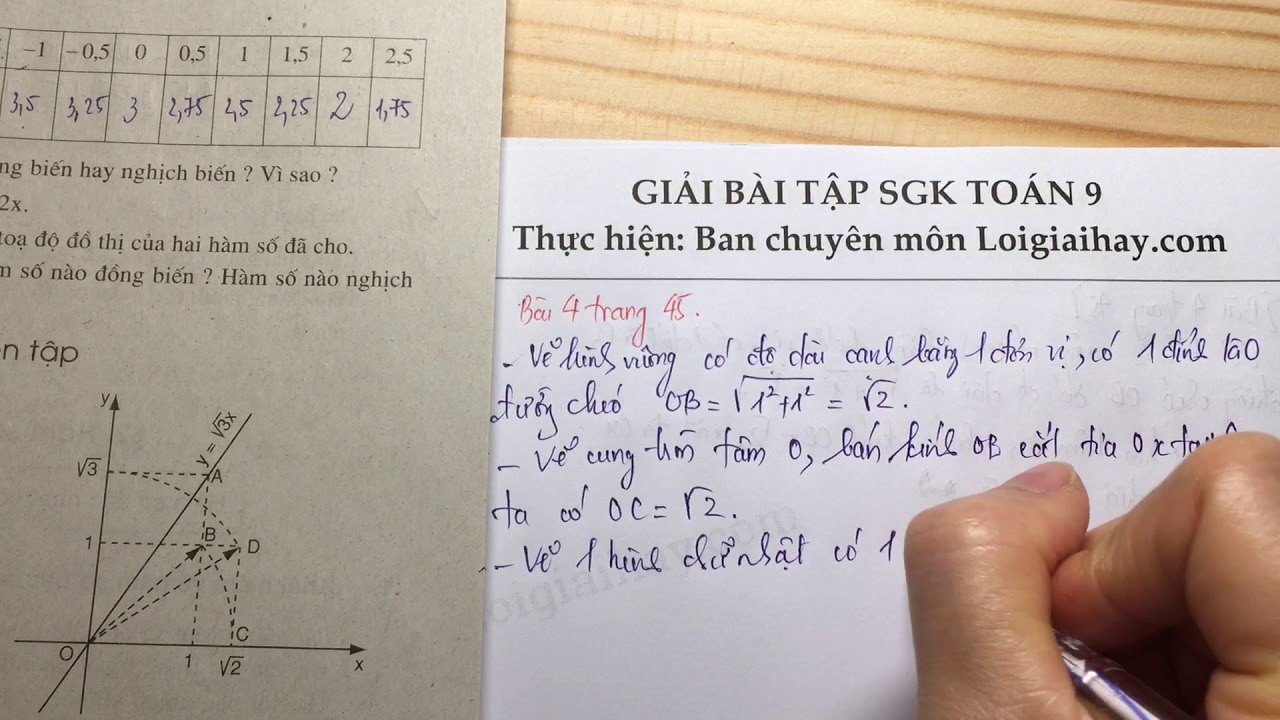 −1 −0,5 0 0,5 1 1,5 2 2,5
3,5 3,25 3 2,75 2,5 2,25 2 1,75
ng biến hay nghịch biến ? Vì sao ?
2x.
toạ độ đồ thị của hai hàm số đã cho.
m số nào đồng biến ? Hàm số nào nghịch
n tập
y
y = √3x
√3
A
1
B
D
C
O
1
√2
x
GIẢI BÀI TẬP SGK TOÁN 9
Thực hiện: Ban chuyên môn Loigiaihay.com
Bài 4 trang 45.
- Vẽ hình vuông có độ dài cạnh bằng 1 đơn vị, có 1 đỉnh là O
đường chéo OB = √1²+1² = √2.
- Vẽ cung tròn tâm O, bán kính OB cắt tia Ox tại
ta có OC = √2.
- Vẽ 1 hình chữ nhật có 1